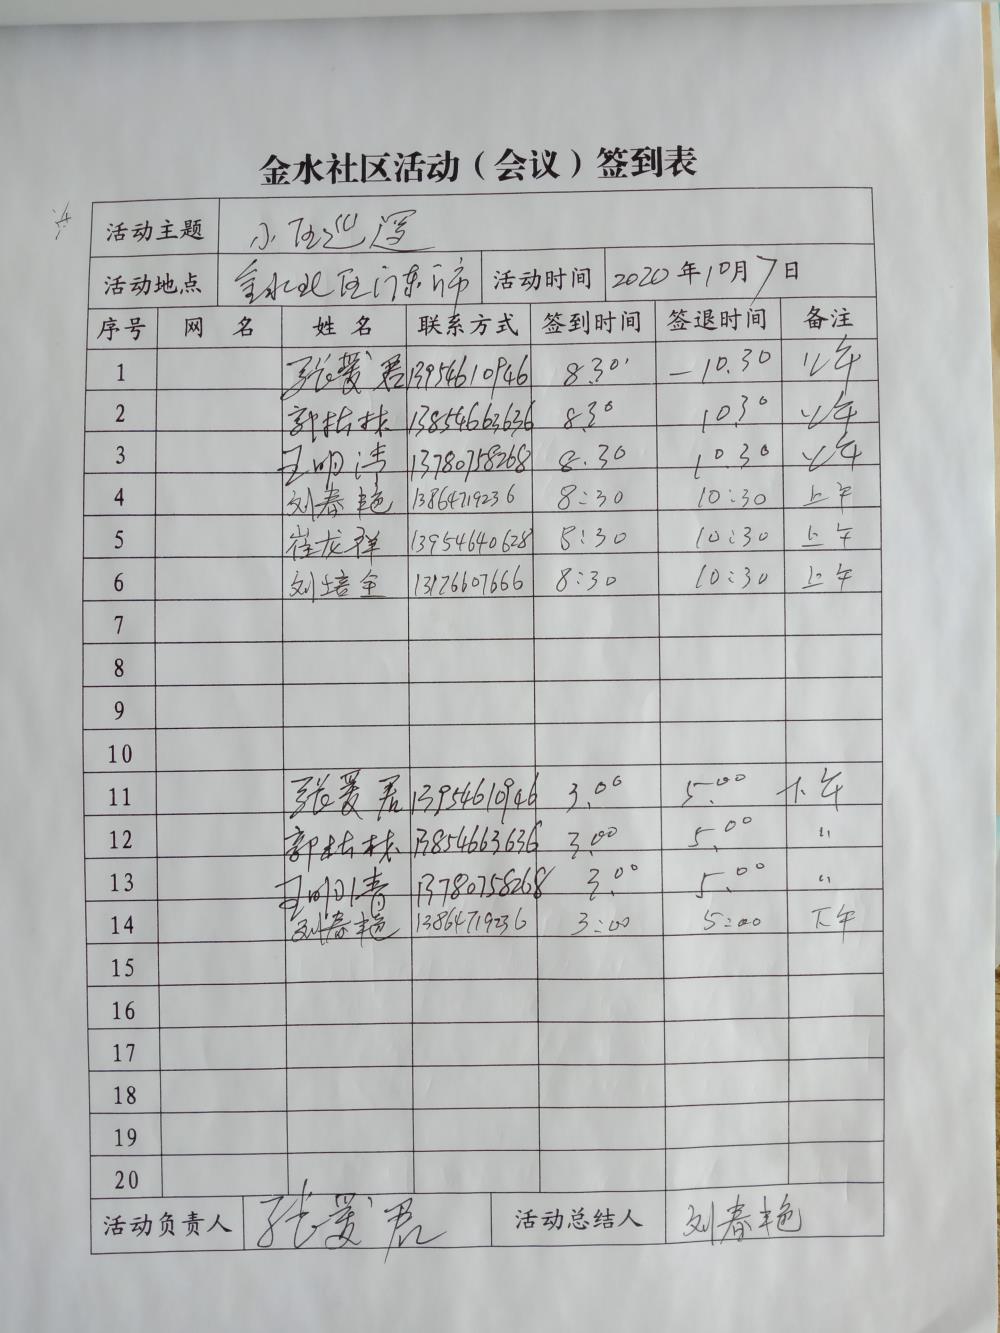 金水社区活动（会议）签到表
活动主题 小区巡逻
活动地点 金水社区门东、市 活动时间 2020年10月7日
序号 网 名 姓 名 联系方式 签到时间 签退时间 备注
1 张爱君 13954610946 8.30 10.30 上午
2 13854663636 8.30 10.30 上午
3 王明清 13780758268 8.30 10.30 上午
4 刘春艳 13864719236 8:30 10:30 上午
5 崔龙祥 13954640628 8:30 10:30 上午
6 刘培全 13176607666 8:30 10:30 上午
7
8
9
10
11 张爱君 13954610946 3.00 5.00 下午
12 13854663636 3.00 5.00 〃
13 王明清 13780758268 3.00 5.00 〃
14 刘春艳 13864719236 3:00 5:00 下午
15
16
17
18
19
20
活动负责人 张爱君 活动总结人 刘春艳